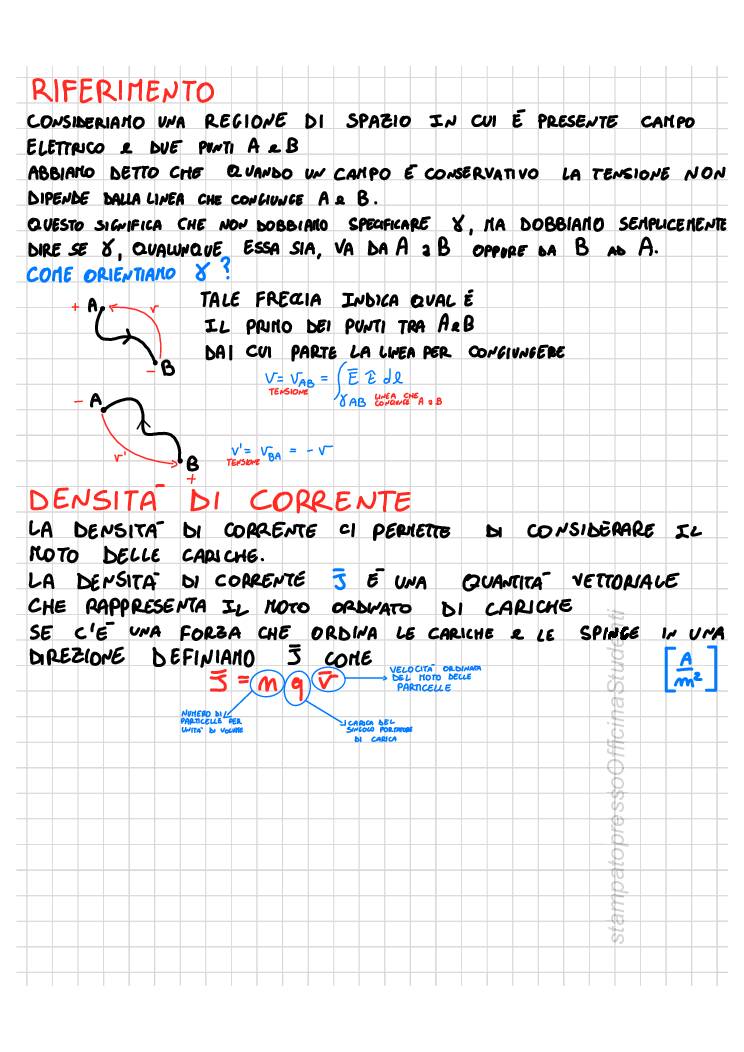 RIFERIMENTO
CONSIDERIAMO UNA REGIONE DI SPAZIO IN CUI È PRESENTE CAMPO
ELETTRICO e DUE PUNTI A e B
ABBIAMO DETTO CHE QUANDO UN CAMPO È CONSERVATIVO LA TENSIONE NON
DIPENDE DALLA LINEA CHE CONGIUNGE A e B.
QUESTO SIGNIFICA CHE NON DOBBIAMO SPECIFICARE γ, MA DOBBIAMO SEMPLICEMENTE
DIRE SE γ, QUALUNQUE ESSA SIA, VA DA A a B OPPURE DA B AD A.
COME ORIENTIAMO γ ?
+ A v
B -
TALE FRECCIA INDICA QUAL È
IL PRIMO DEI PUNTI TRA A e B
DAI CUI PARTE LA LINEA PER CONGIUNGERE
V = V_AB = ∫ Ē t̄ dl
TENSIONE
γ AB LINEA CHE CONGIUNGE A e B
- A
v' B +
v' = V_BA = - v
TENSIONE
DENSITÀ DI CORRENTE
LA DENSITÀ DI CORRENTE CI PERMETTE DI CONSIDERARE IL
MOTO DELLE CARICHE.
LA DENSITÀ DI CORRENTE J̄ È UNA QUANTITÀ VETTORIALE
CHE RAPPRESENTA IL MOTO ORDINATO DI CARICHE
SE C'È UNA FORZA CHE ORDINA LE CARICHE e LE SPINGE IN UNA
DIREZIONE DEFINIAMO J̄ COME
[A/m²]
J̄ = n q v̄
VELOCITÀ ORDINATA
DEL MOTO DELLE
PARTICELLE
NUMERO DI
PARTICELLE PER
UNITÀ DI VOLUME
CARICA DEL
SINGOLO PORTATORE
DI CARICA
stampatopressoOfficinaStudenti